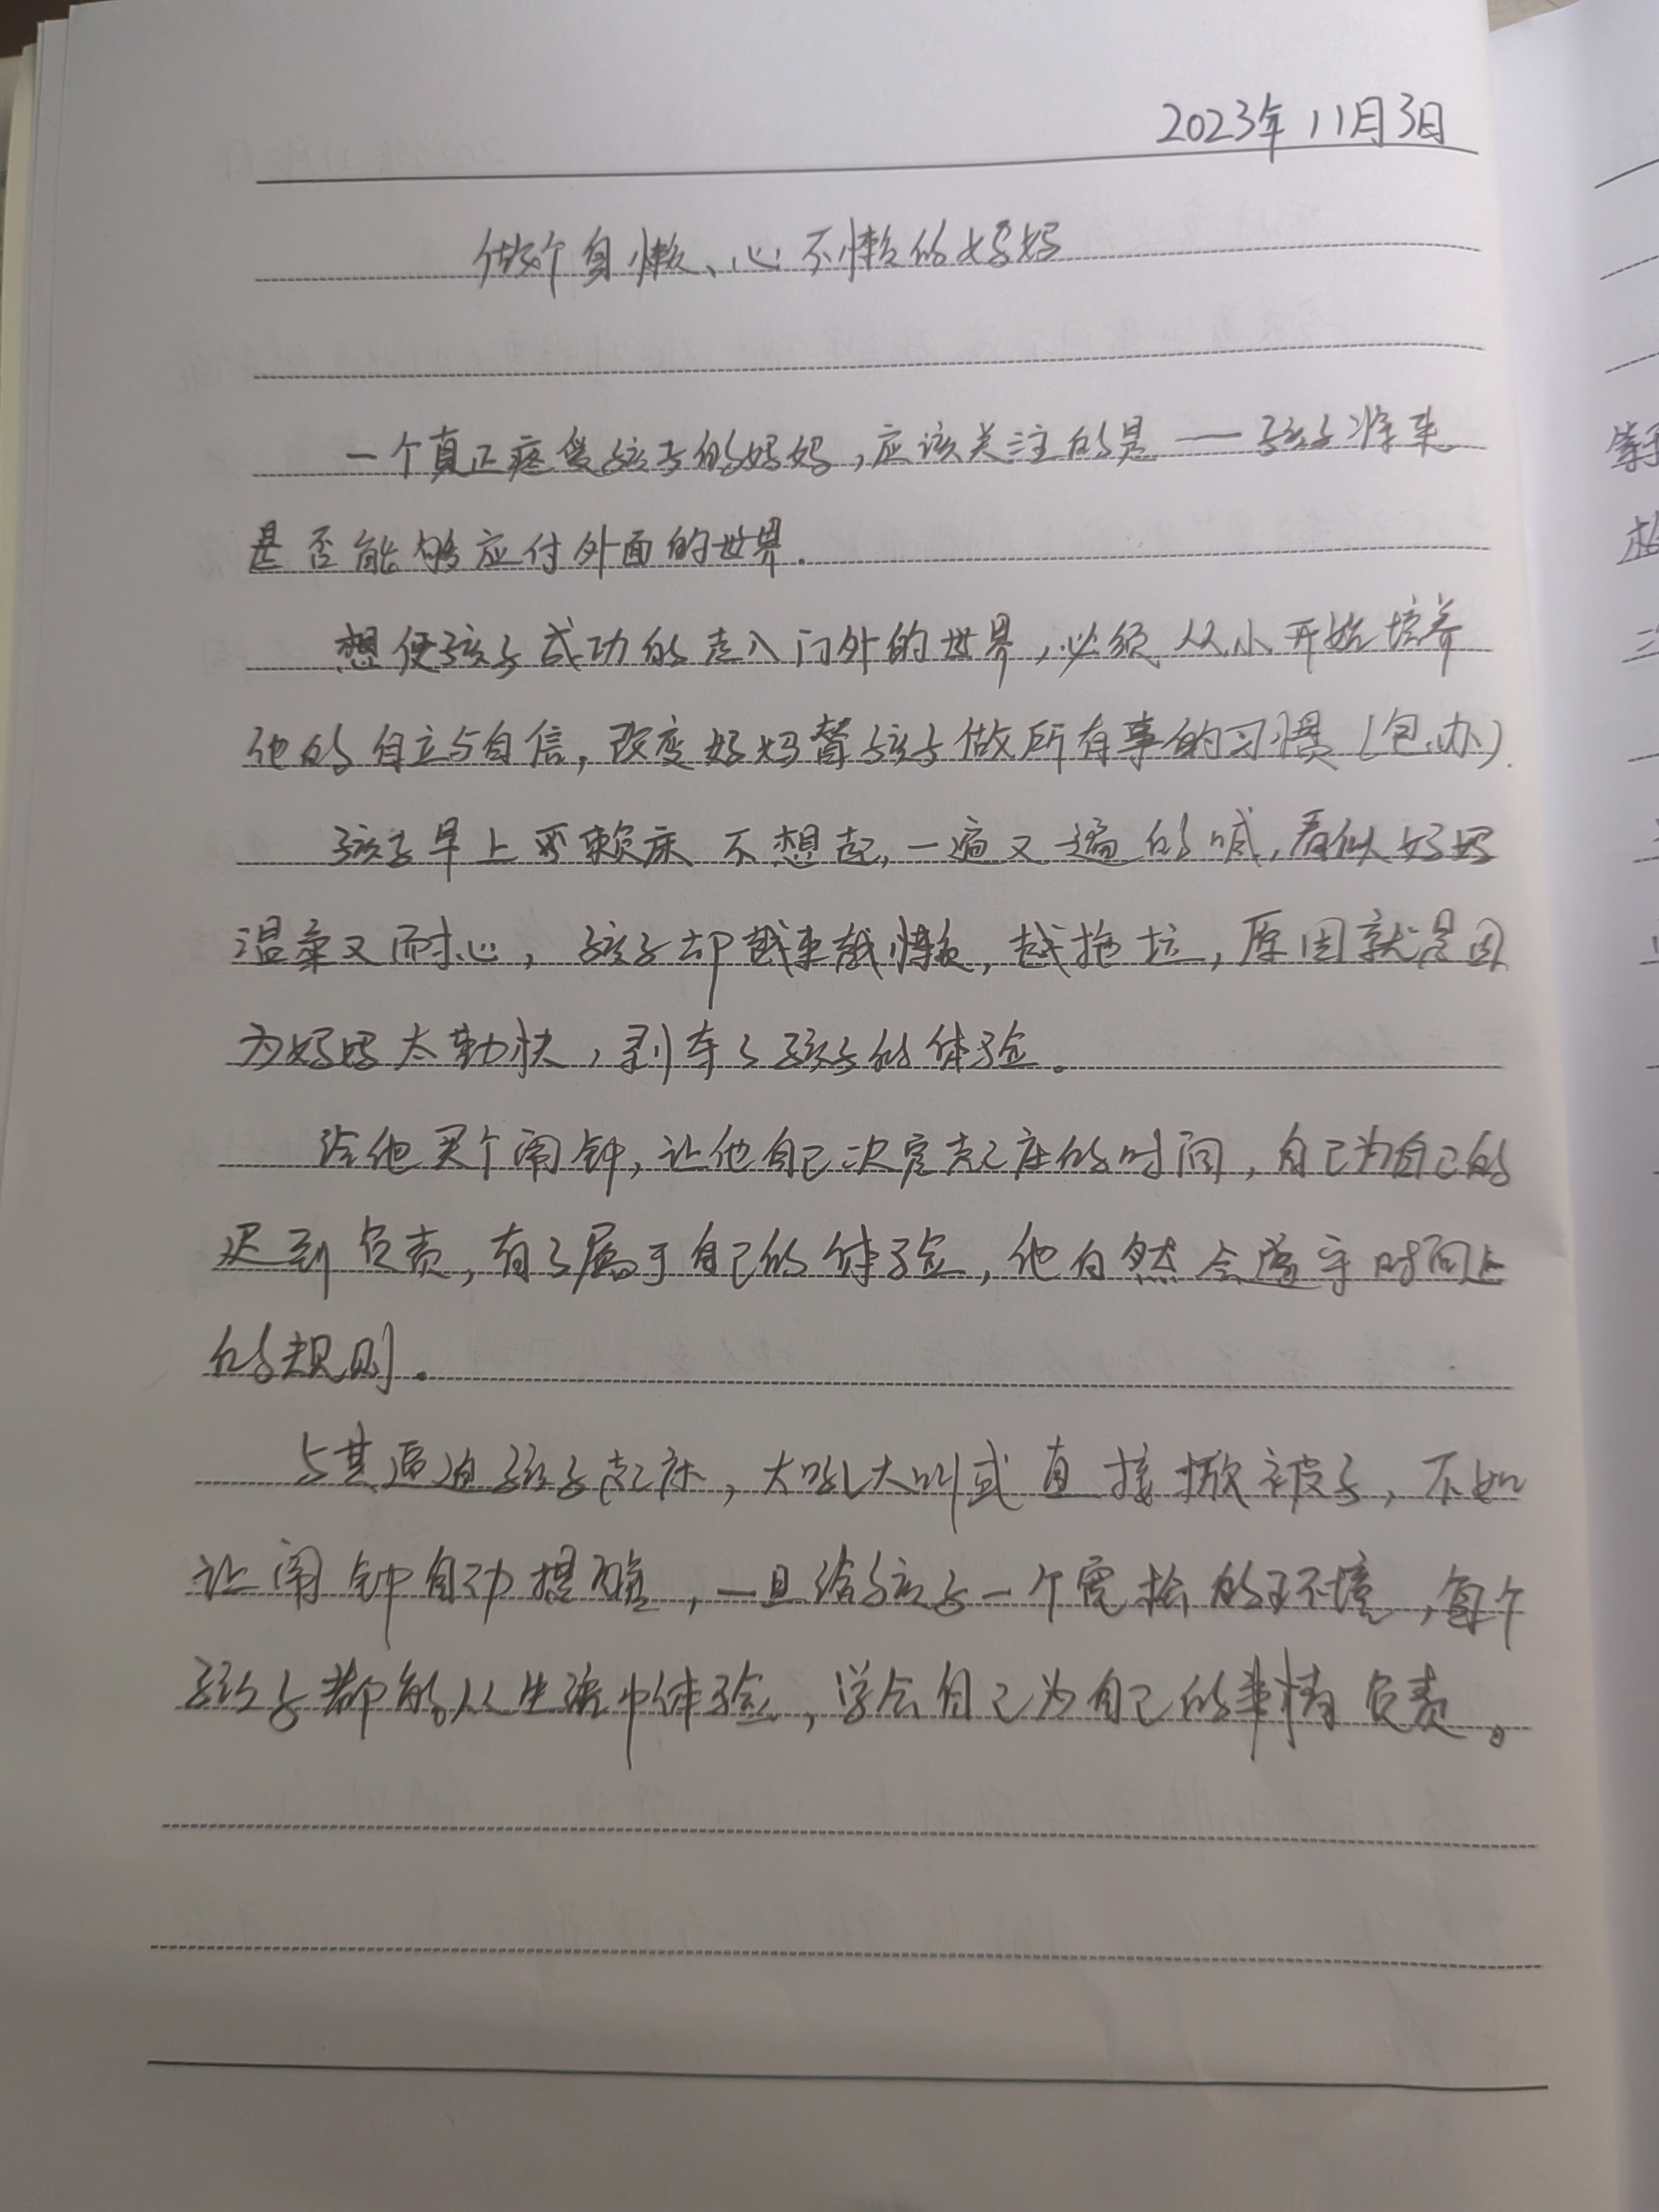 2023年11月3日
做个身懒、心不懒的妈妈
一个真正疼爱孩子的妈妈,应该关注的是——孩子将来
是否能够应付外面的世界.
想使孩子成功的走入门外的世界,必须从小开始培养
他的自立与自信,改变妈妈替孩子做所有事的习惯(包办).
孩子早上要赖床不想起,一遍又一遍的喊,看似妈妈
温柔又耐心,孩子却越来越懒,越拖拉,原因就是因
为妈妈太勤快,剥夺了孩子的体验。
给他买个闹钟,让他自己决定起床的时间,自己为自己的
迟到负责,有了属于自己的体验,他自然会遵守时间上
的规则.
与其逼迫孩子起床,大吼大叫或直接掀被子,不如
让闹钟自动提醒,一旦给孩子一个宽松的环境,每个
孩子都能从生活中体验,学会自己为自己的事情负责。